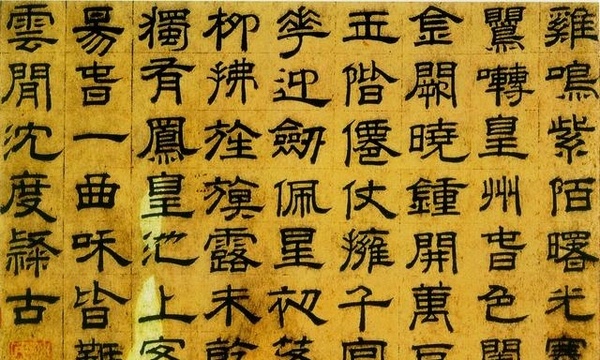 雞鳴紫陌曙光寒
鸎囀皇州旾色闌
金闕曉鍾開萬戶
玉階僊仗擁千官
華迎劒佩星初落
柳拂旌旗露未乾
獨有鳳皇池上客
昜旾一曲咊皆難
雲閒沈度隸古